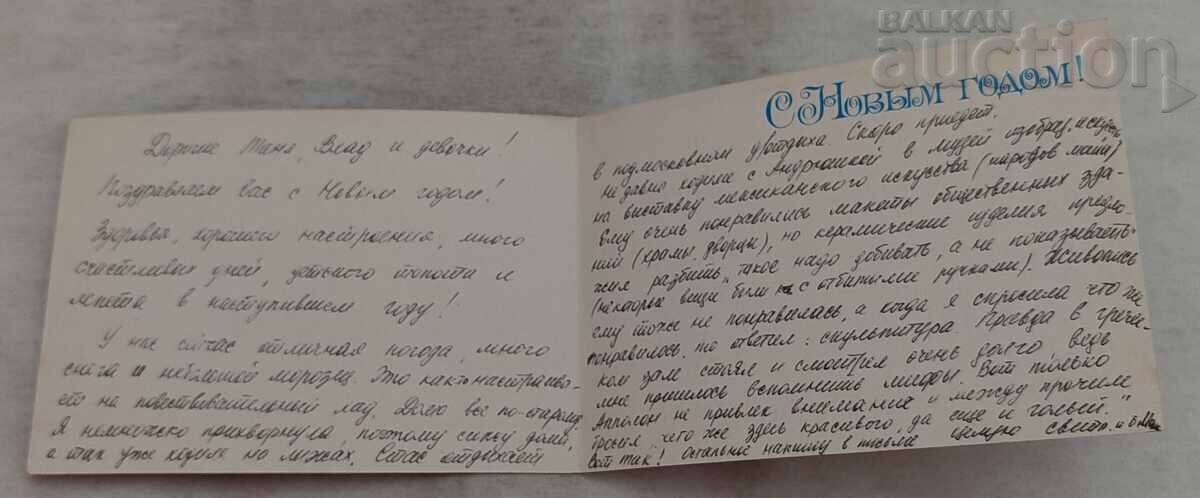 BALKAN
auction
Дорогие Таня, Влад и девочки!
Поздравляем вас с Новым годом!
Здоровья, хорошего настроения, много
счастливых дней, детского топота и
лепета в наступившем году!
У нас сейчас отличная погода, много
снега и небольшой морозец. Это как-то настраива-
ет на повествовательный лад. Дома все по-старому.
Я немножко прихворнула, поэтому сижу дома,
а так уже ходила на лыжах. Стас отдыхает
С Новым годом!
в подмосковном д/отдыха. Скоро приедет.
Недавно ходили с Андрюшкой в музей изобраз. искусств
на выставку мексиканского искусства (народов майя)
Ему очень понравились макеты общественных зда-
ний (храмы, дворцы), но керамические изделия предло-
жил разбить, "такое надо добивать, а не показывать"
(некоторые вещи были с отбитыми ручками). Живопись
ему тоже не понравилась, а когда я спросила что же
понравилось, то ответил: скульптура. Правда в гречес-
ком зале стоял и смотрел очень долго ведь
мне пришлось вспомнить мифы. Вот только
Апполон не привлек внимания и между прочим
"что же здесь красивого, да еще и голый."
Вот так! Остальное напишу в письме